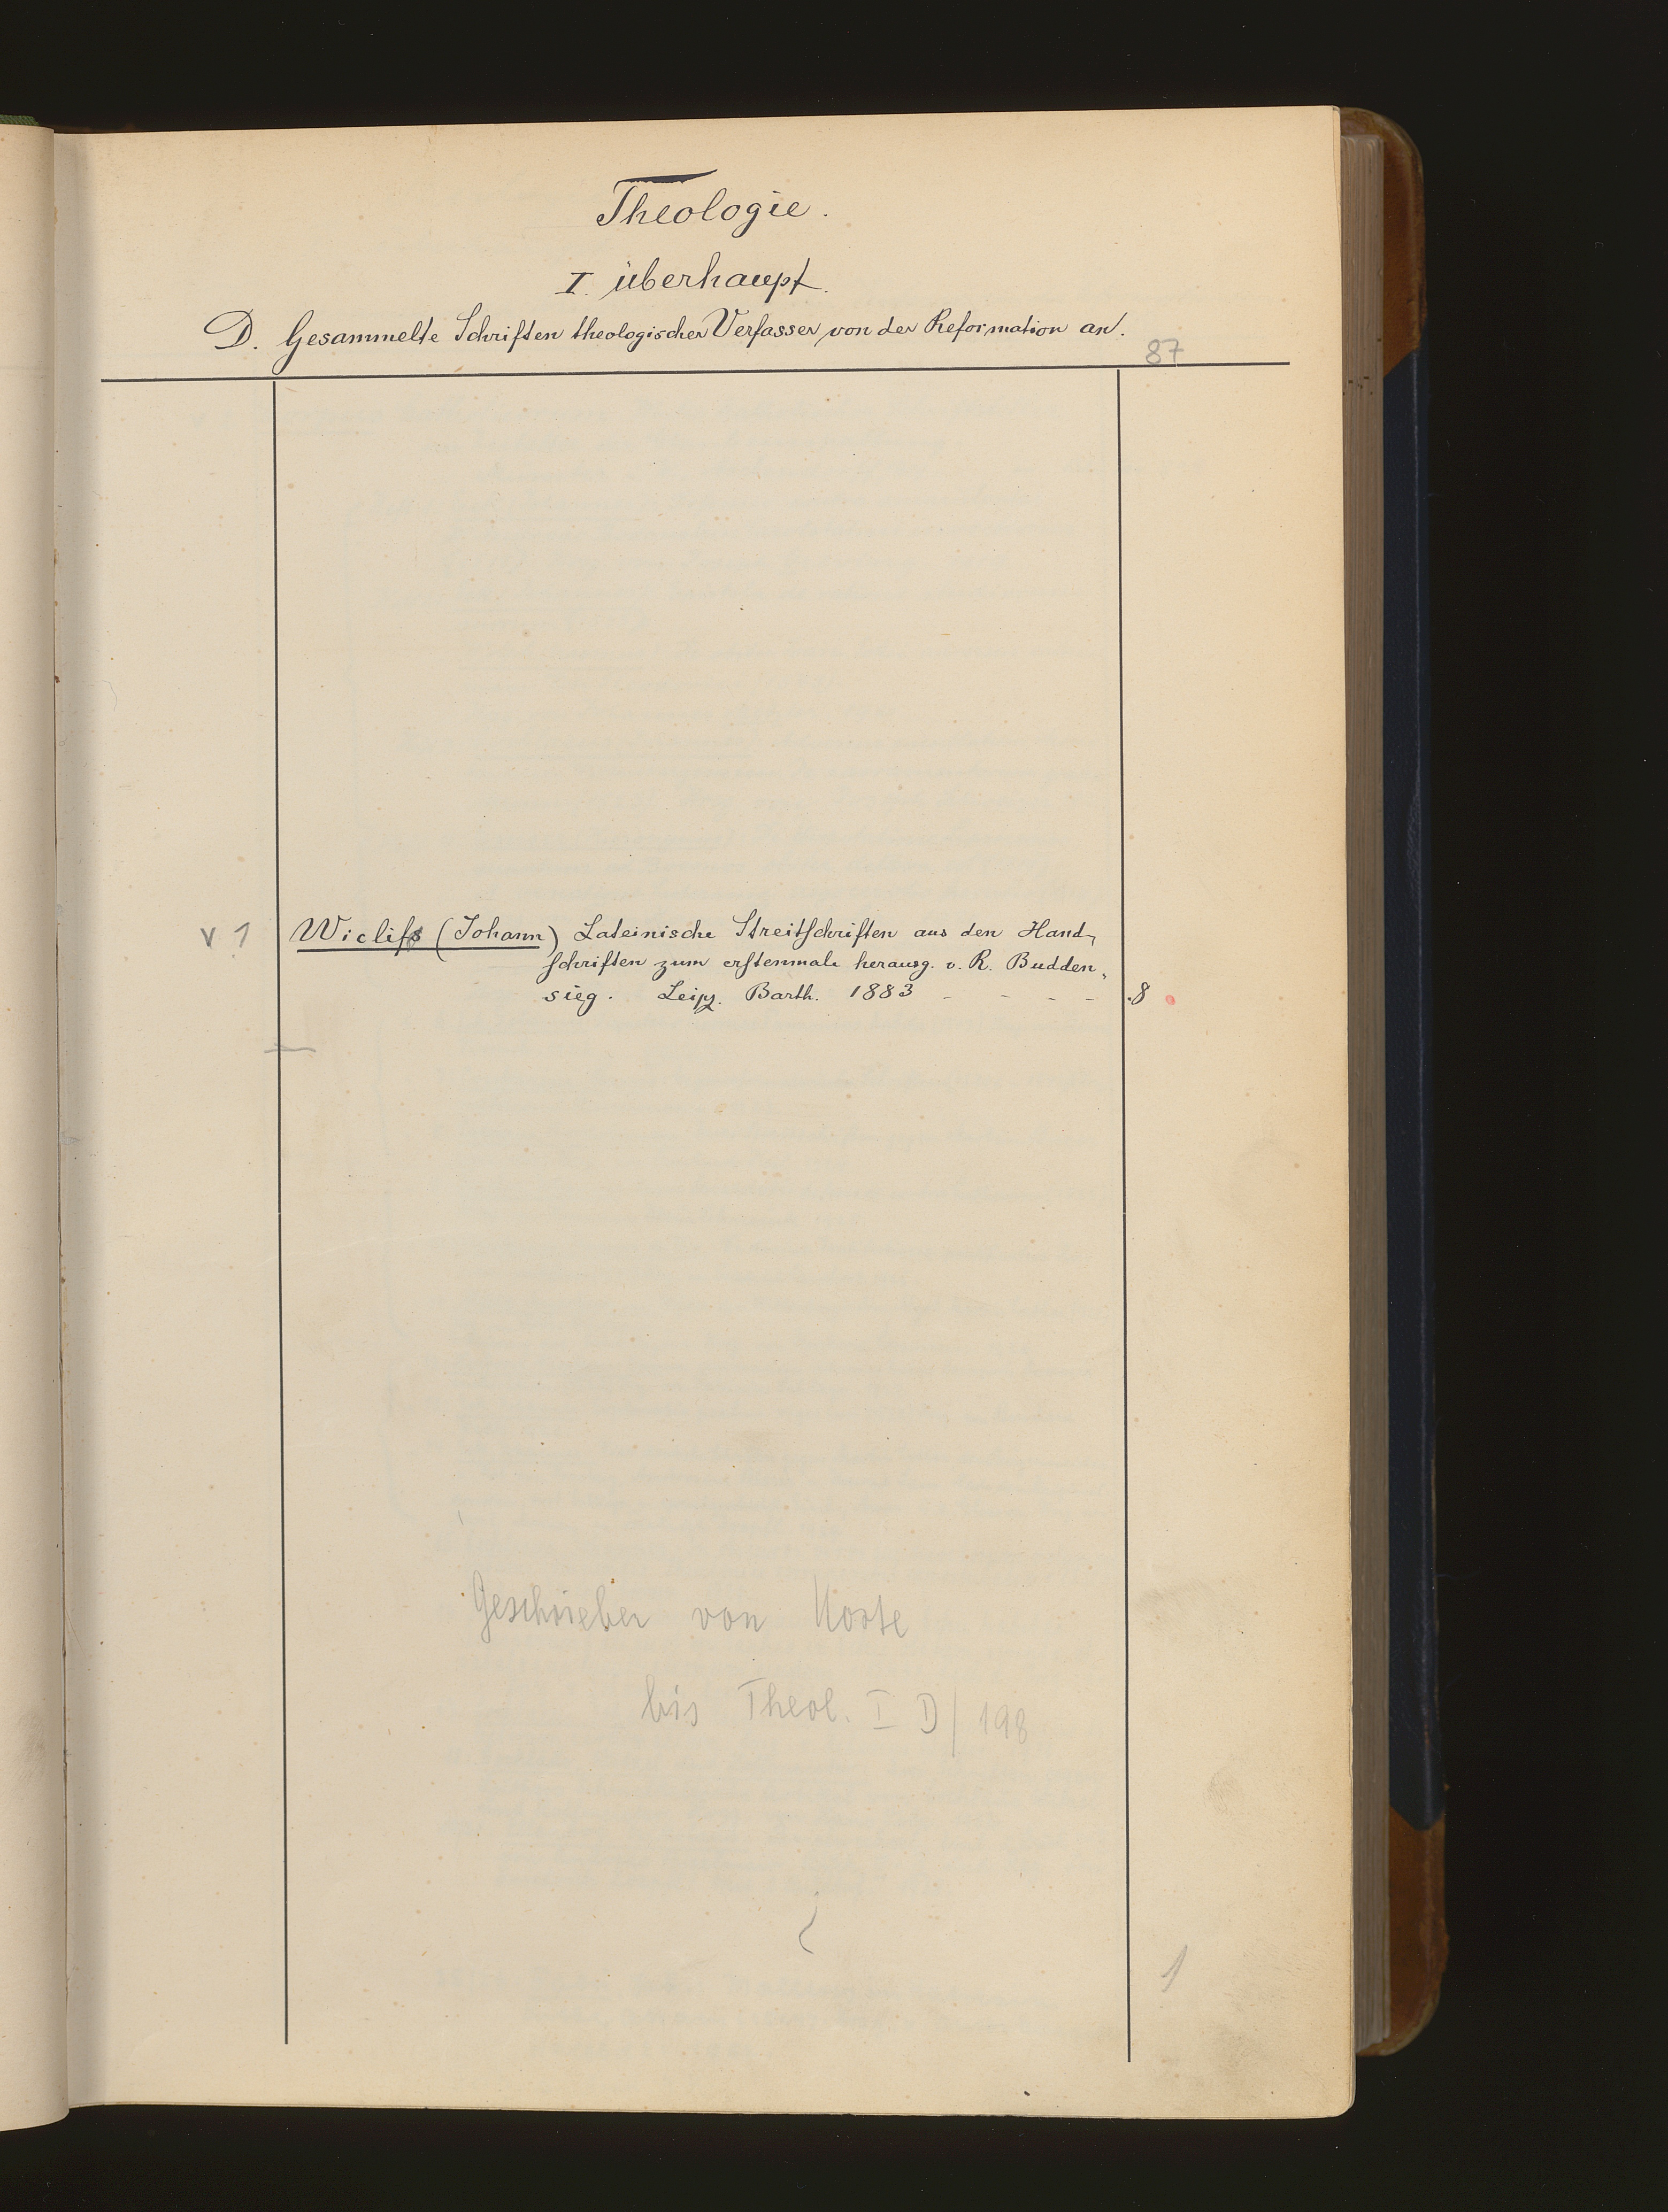 Theologie.
I. überhaupt.
D. Gesammelte Schriften theologischer Verfasser von der Reformation an.
87
V 1 Wiclifs (Johann) Lateinische Streitschriften aus den Hand-
schriften zum erstenmale herausg. v. R. Budden-
sieg. Leipz. Barth. 1883 - - - - .8
Geschrieben von
bis Theol. I D/198
1